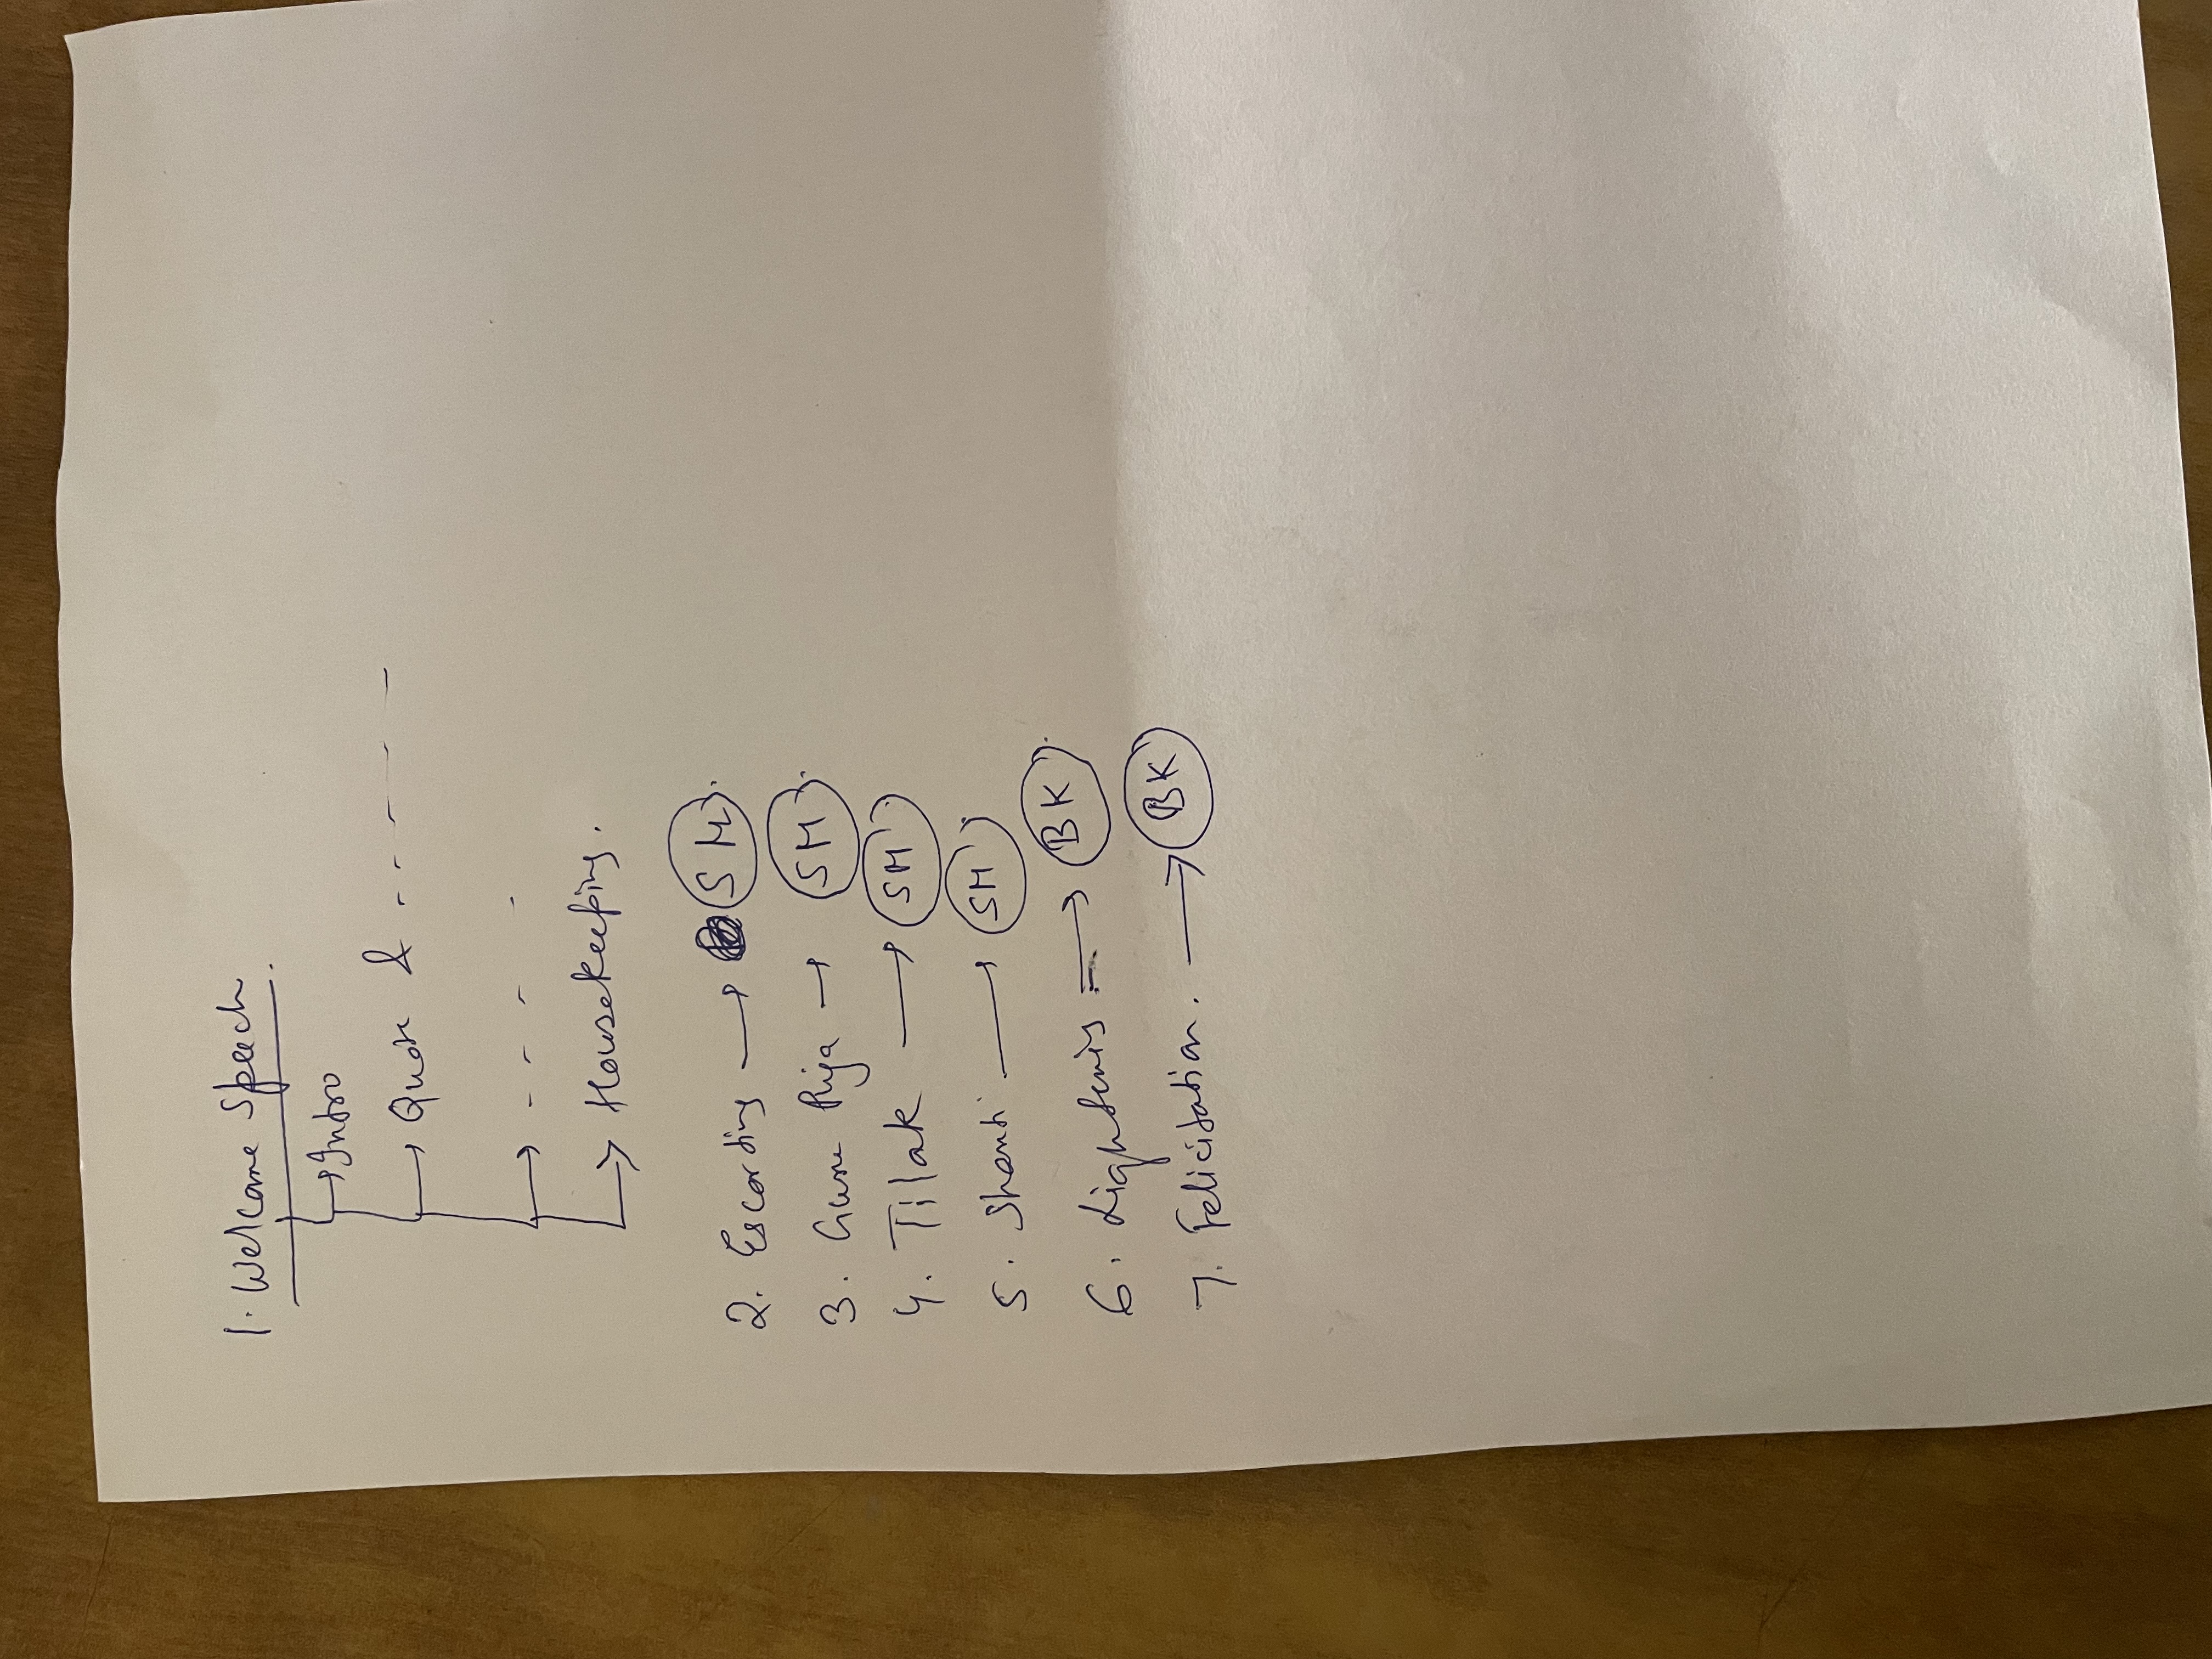 1. Welcome Speech.
→ Intro
→ Quote & - - - - -
→ - - - -
→ Housekeeping.
2. Escorting → SM
3. Guru Puja → SM
4. Tilak → SM
5. Shanti → SM
6. → BK
7. Felicitation. → BK